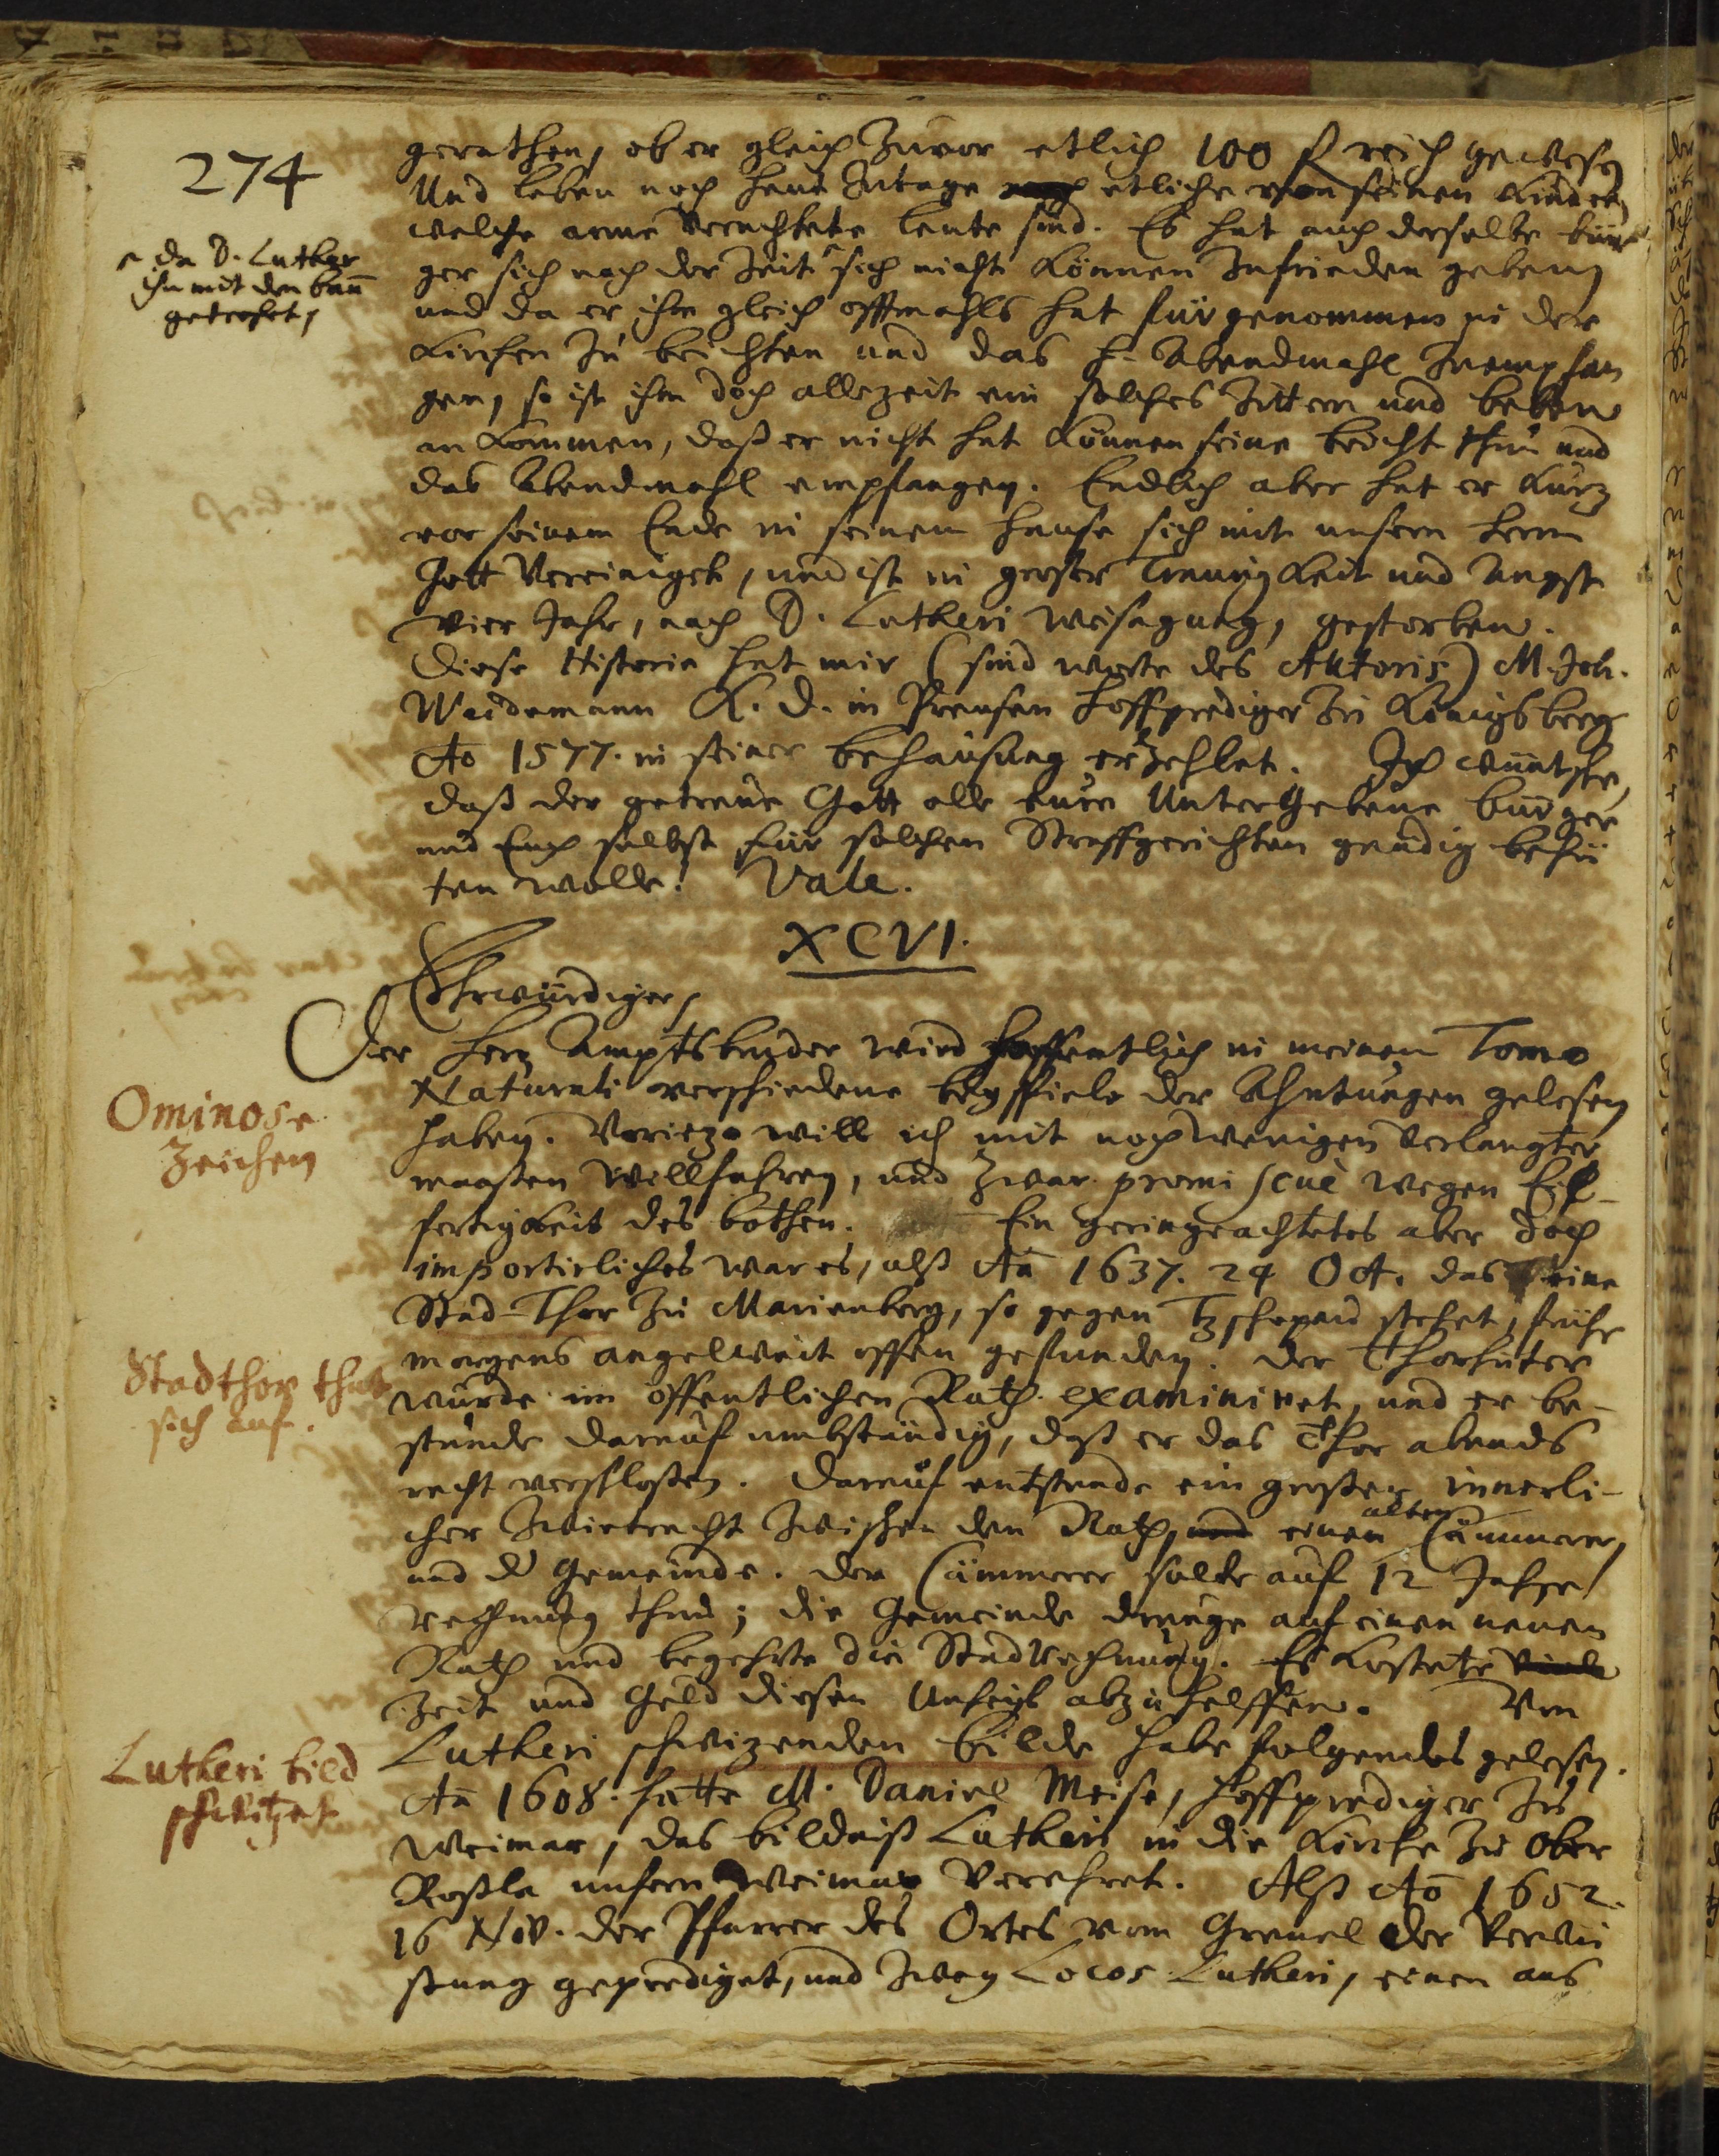 274
gerathen, ob er gleich zuvor etlich 100 f reich gewesen
Und leben noch heut Zutage etliche von seinen Kindern,
welche arme Verachtete leute sind. Es hat auch derselbe bür
ger sich nach der Zeit sich nicht können Zufrieden geben,
^ da D. Luther
ihn mit den bann
getrohet,
und da er ihm gleich offtmahls hat fürgenommen in der
Kirchen zu beichten und das H. Abendmahl zuempfan
gen, so ist ihm doch allezeit ein solches Zittern und beben
an kommen, daß er nicht hat können seine beicht thun und
das Abendmahl empfangen. Endlich aber hat er kurz
vor seinem Ende in seinem hause sich mit unsern herrn
Gott Vereiniget, und ist in groser Traurigkeit und Angst
vier Jahr, nach D. Lutheri weisagung, gestorben.
Diese Historie hat mir (sind worte des Autoris) M. Joh.
Weidemann K. D. in Preusen Hoffprediger zu Königsberg
Ao 1577. in seiner behausung erzehlet. Ich wüntsche,
daß der getreue Gott alle eure Untergebene bürger
und Euch selbst für solchen Straffgerichten gnädig behü
ten wolle. Vale.
XCVI.
Ehrwürdiger,
Der Herr Amptsbruder wird hoffentlich in meinen Tomo
Naturali verschiedene beyspiele der Ahntungen gelesen
Ominose
Zeichen
haben. Voriezo will ich mit noch wenigen Verlangter
maaßen willfahren, und zwar promiscuè wegen Eil-
fertigkeit des bothen. Ein geringeachtetes aber doch
importirliches war es, alß An 1637. 24 Oct. das eine
Stad-Thor zu Marienberg, so gegen Tzschopau stehet, frühe
Stadthor thut
sich auf.
morgens angelweit offen gefunden. Der Thorhüter
wurde im öffentlichen Rath examiniret, und er be-
stunde darauf umbständig, daß er das Thor abends
recht verschlossen. Darauf entstunde ein großer innerli-
cher Zwietracht zwischen den Rath, einen alten Cämmerer,
und d Gemeinde. Der Cämmerer solte auf 12 Jahre
rechnung thun; die Gemeinde drunge auf einen neuen
Rath und begehrte die Stadrechnung. Es kostete viele
Zeit und Geld diesen Unheyl abzuhelffen. Von
Lutheri schwizenden bilde habe folgendes gelesen.
Lutheri bild
schwitzet
An 1608. hatte M. Daniel Meise, Hoffprediger zu
Weimar, das bildniß Lutheri in die Kirche zu Ober
Roßla unfern Weimar Verehret. Alß Ao 1652.
16 Nov. der Pfarrer des Ortes vom Greuel der Verwü
stung geprediget, und zwey Locos Lutheri, einen aus